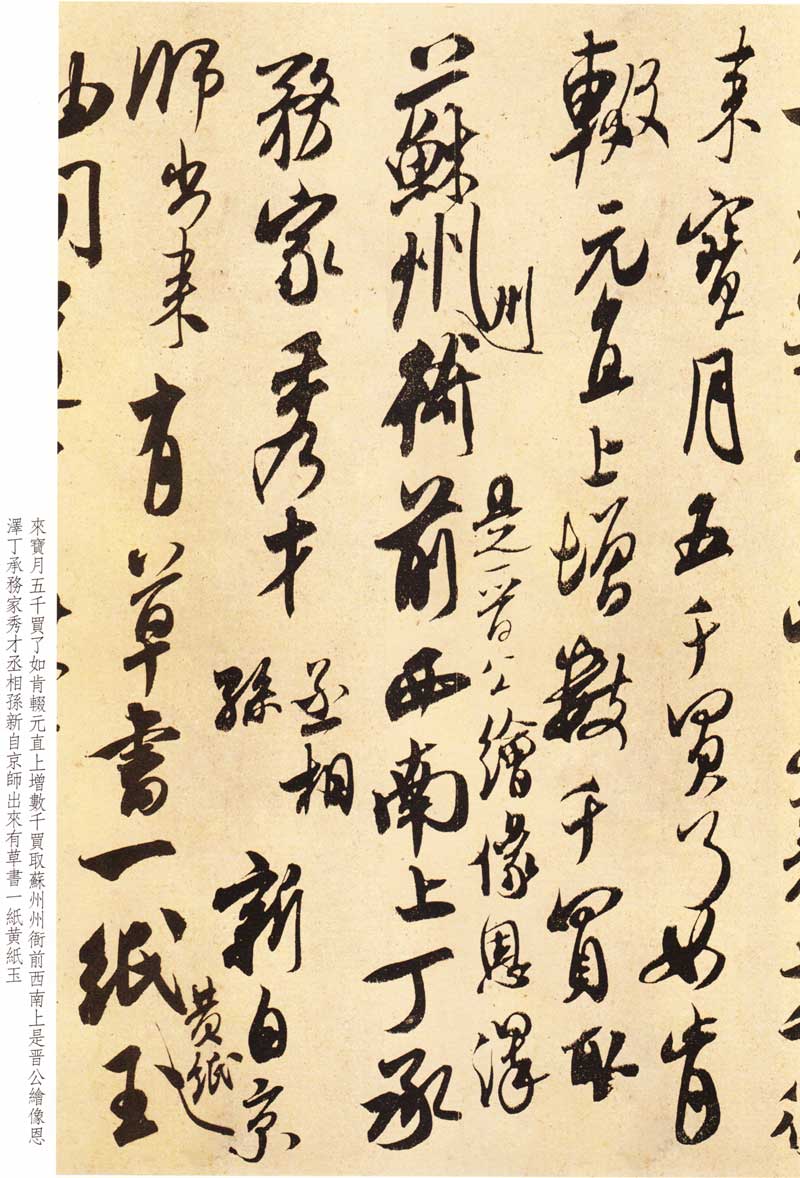 來寶月五千買了如肯
輟元直上增數千買取
蘇州
州
衙前西南上丁承
是晋公繪像恩澤
務家秀才
丞相
孫
新自京
師出來有草書一紙
黄紙
玉
來寶月五千買了如肯輟元直上增數千買取蘇州州衙前西南上是晋公繪像恩
澤丁承務家秀才丞相孫新自京師出來有草書一紙黄紙玉